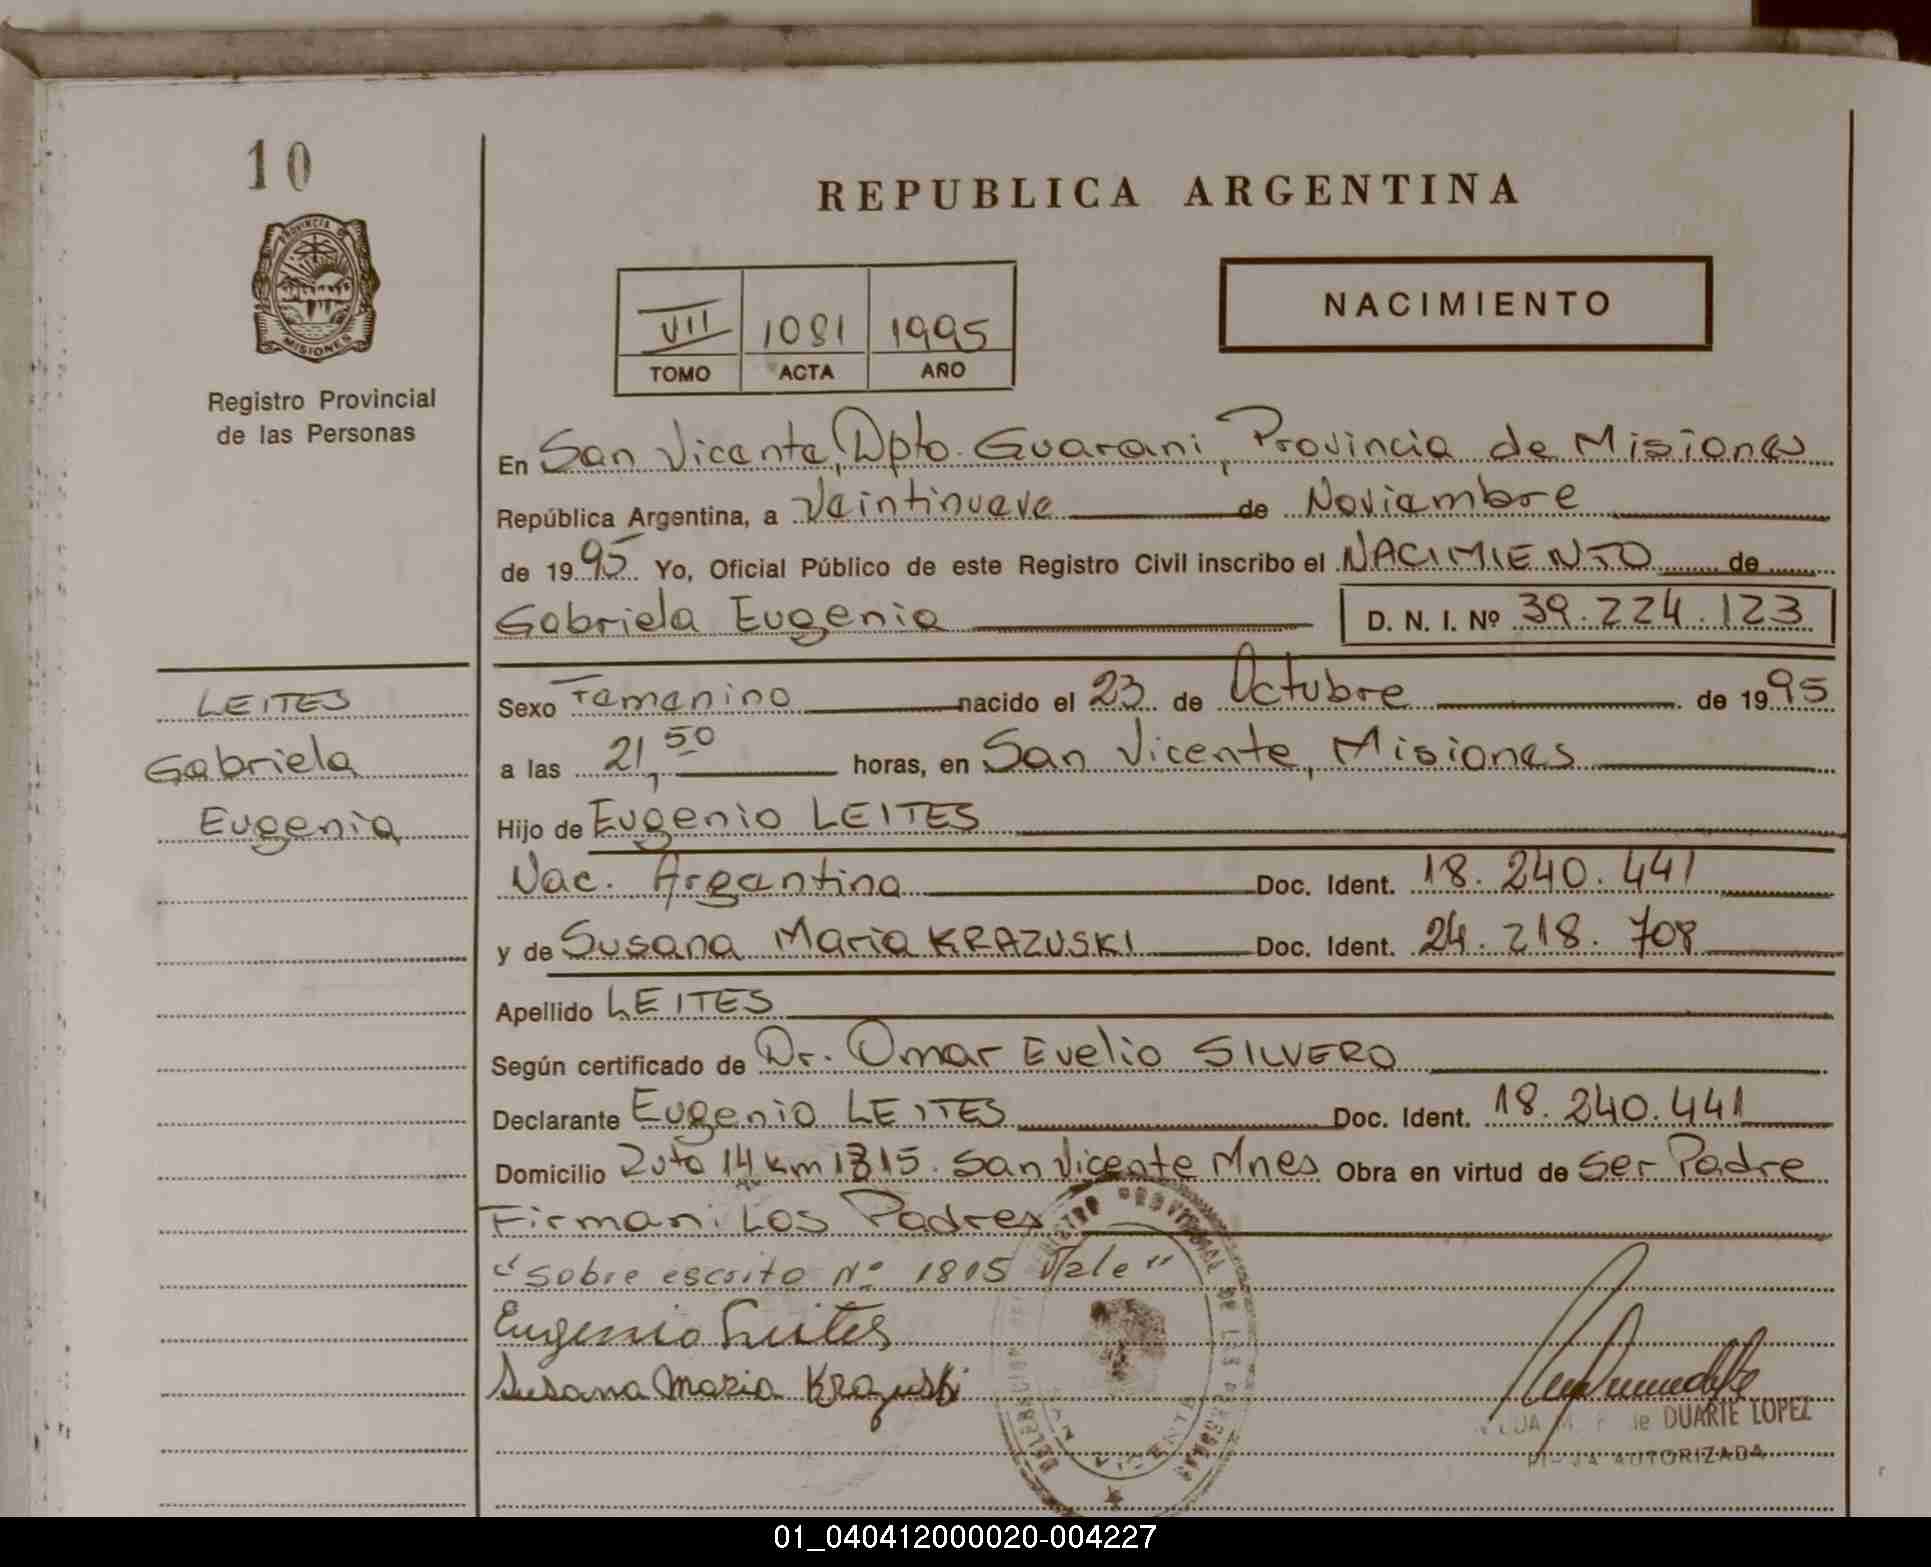 10
REPUBLICA ARGENTINA
PROVINCIA DE
MISIONES
Registro Provincial
de las Personas
VII 1081 1995
TOMO ACTA AÑO
NACIMIENTO
En San Vicente, Dpto. Guarani, Provincia de Misiones
República Argentina, a Veintinueve de Noviembre
de 1995 Yo, Oficial Público de este Registro Civil inscribo el NACIMIENTO de
Gabriela Eugenia D. N. I. Nº 39.224.123
LEITES
Gabriela
Eugenia
Sexo Femenino nacido el 23 de Octubre de 1995
a las 21,50 horas, en San Vicente, Misiones
Hijo de Eugenio LEITES
Nac. Argentina Doc. Ident. 18.240.441
y de Susana Maria KRAZUSKI Doc. Ident. 24.218.708
Apellido LEITES
Según certificado de Dr. Omar Evelio SILVERO
Declarante Eugenio LEITES Doc. Ident. 18.240.441
Domicilio Ruta 14 km 1815. San Vicente Mnes Obra en virtud de Ser Padre
Firman: Los Padres
"Sobre escrito Nº 1815 Vale"
Eugenio Leites
Susana Maria Krazuski
DUARTE LOPEZ
AUTORIZADA
01_040412000020-004227